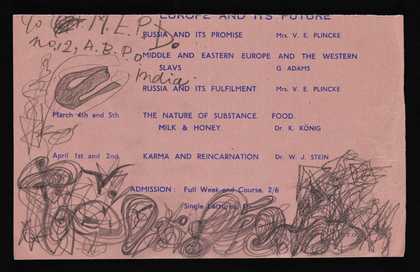 EUROPE AND ITS FUTURE
RUSSIA AND ITS PROMISE Mrs. V. E. PLINCKE
MIDDLE AND EASTERN EUROPE AND THE WESTERN
SLAVS G. ADAMS
RUSSIA AND ITS FULFILMENT Mrs. V. E. PLINCKE
March 4th and 5th THE NATURE OF SUBSTANCE. FOOD.
MILK & HONEY. Dr. K. KÖNIG
April 1st and 2nd KARMA AND REINCARNATION Dr. W. J. STEIN
ADMISSION: Full Week-end Course, 2/6
Single Lectures, 1/-
M.E.P.D.
No. 12, A.B.P.O
India.